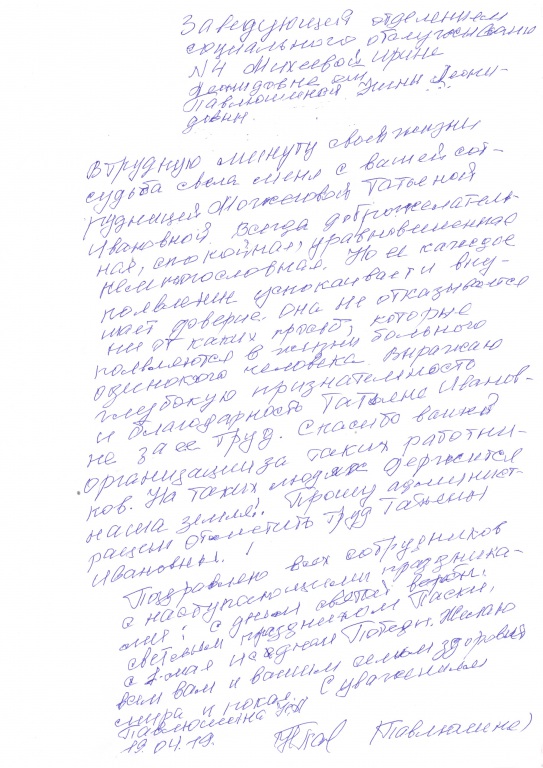 Заведующей отделением
социального обслуживания
N4 Михеевой Ирине
Леонидовне от
Павлюшиной Нины Леони-
довны.
В трудную минуту своей жизни
судьба свела меня с вашей сот-
рудницей Татьяной
Ивановной. Всегда доброжелатель-
ная, спокойная, уравновешенная
немногословная. Но ее каждое
появление успокаивает и вну-
шает доверие. Она не отказывается
ни от каких просьб, которые
появляются в жизни больного
одинокого человека. Выражаю
глубокую признательность
и благодарность Татьяне Иванов-
не за ее труд. Спасибо вашей
организации за таких работни-
ков. На таких людях держится
наша земля! Прошу админист-
рацию отметить труд Татьяны
Ивановны!
Поздравляю всех сотрудников
с наступающими праздника-
ми! С днем святой вербы,
светлым праздником Пасхи,
с 1-мая и с днем Победы. Желаю
всем вам и вашим семьям здоровья
мира и покоя. С уважением
Павлюшина
19.04.19. (Павлюшина)